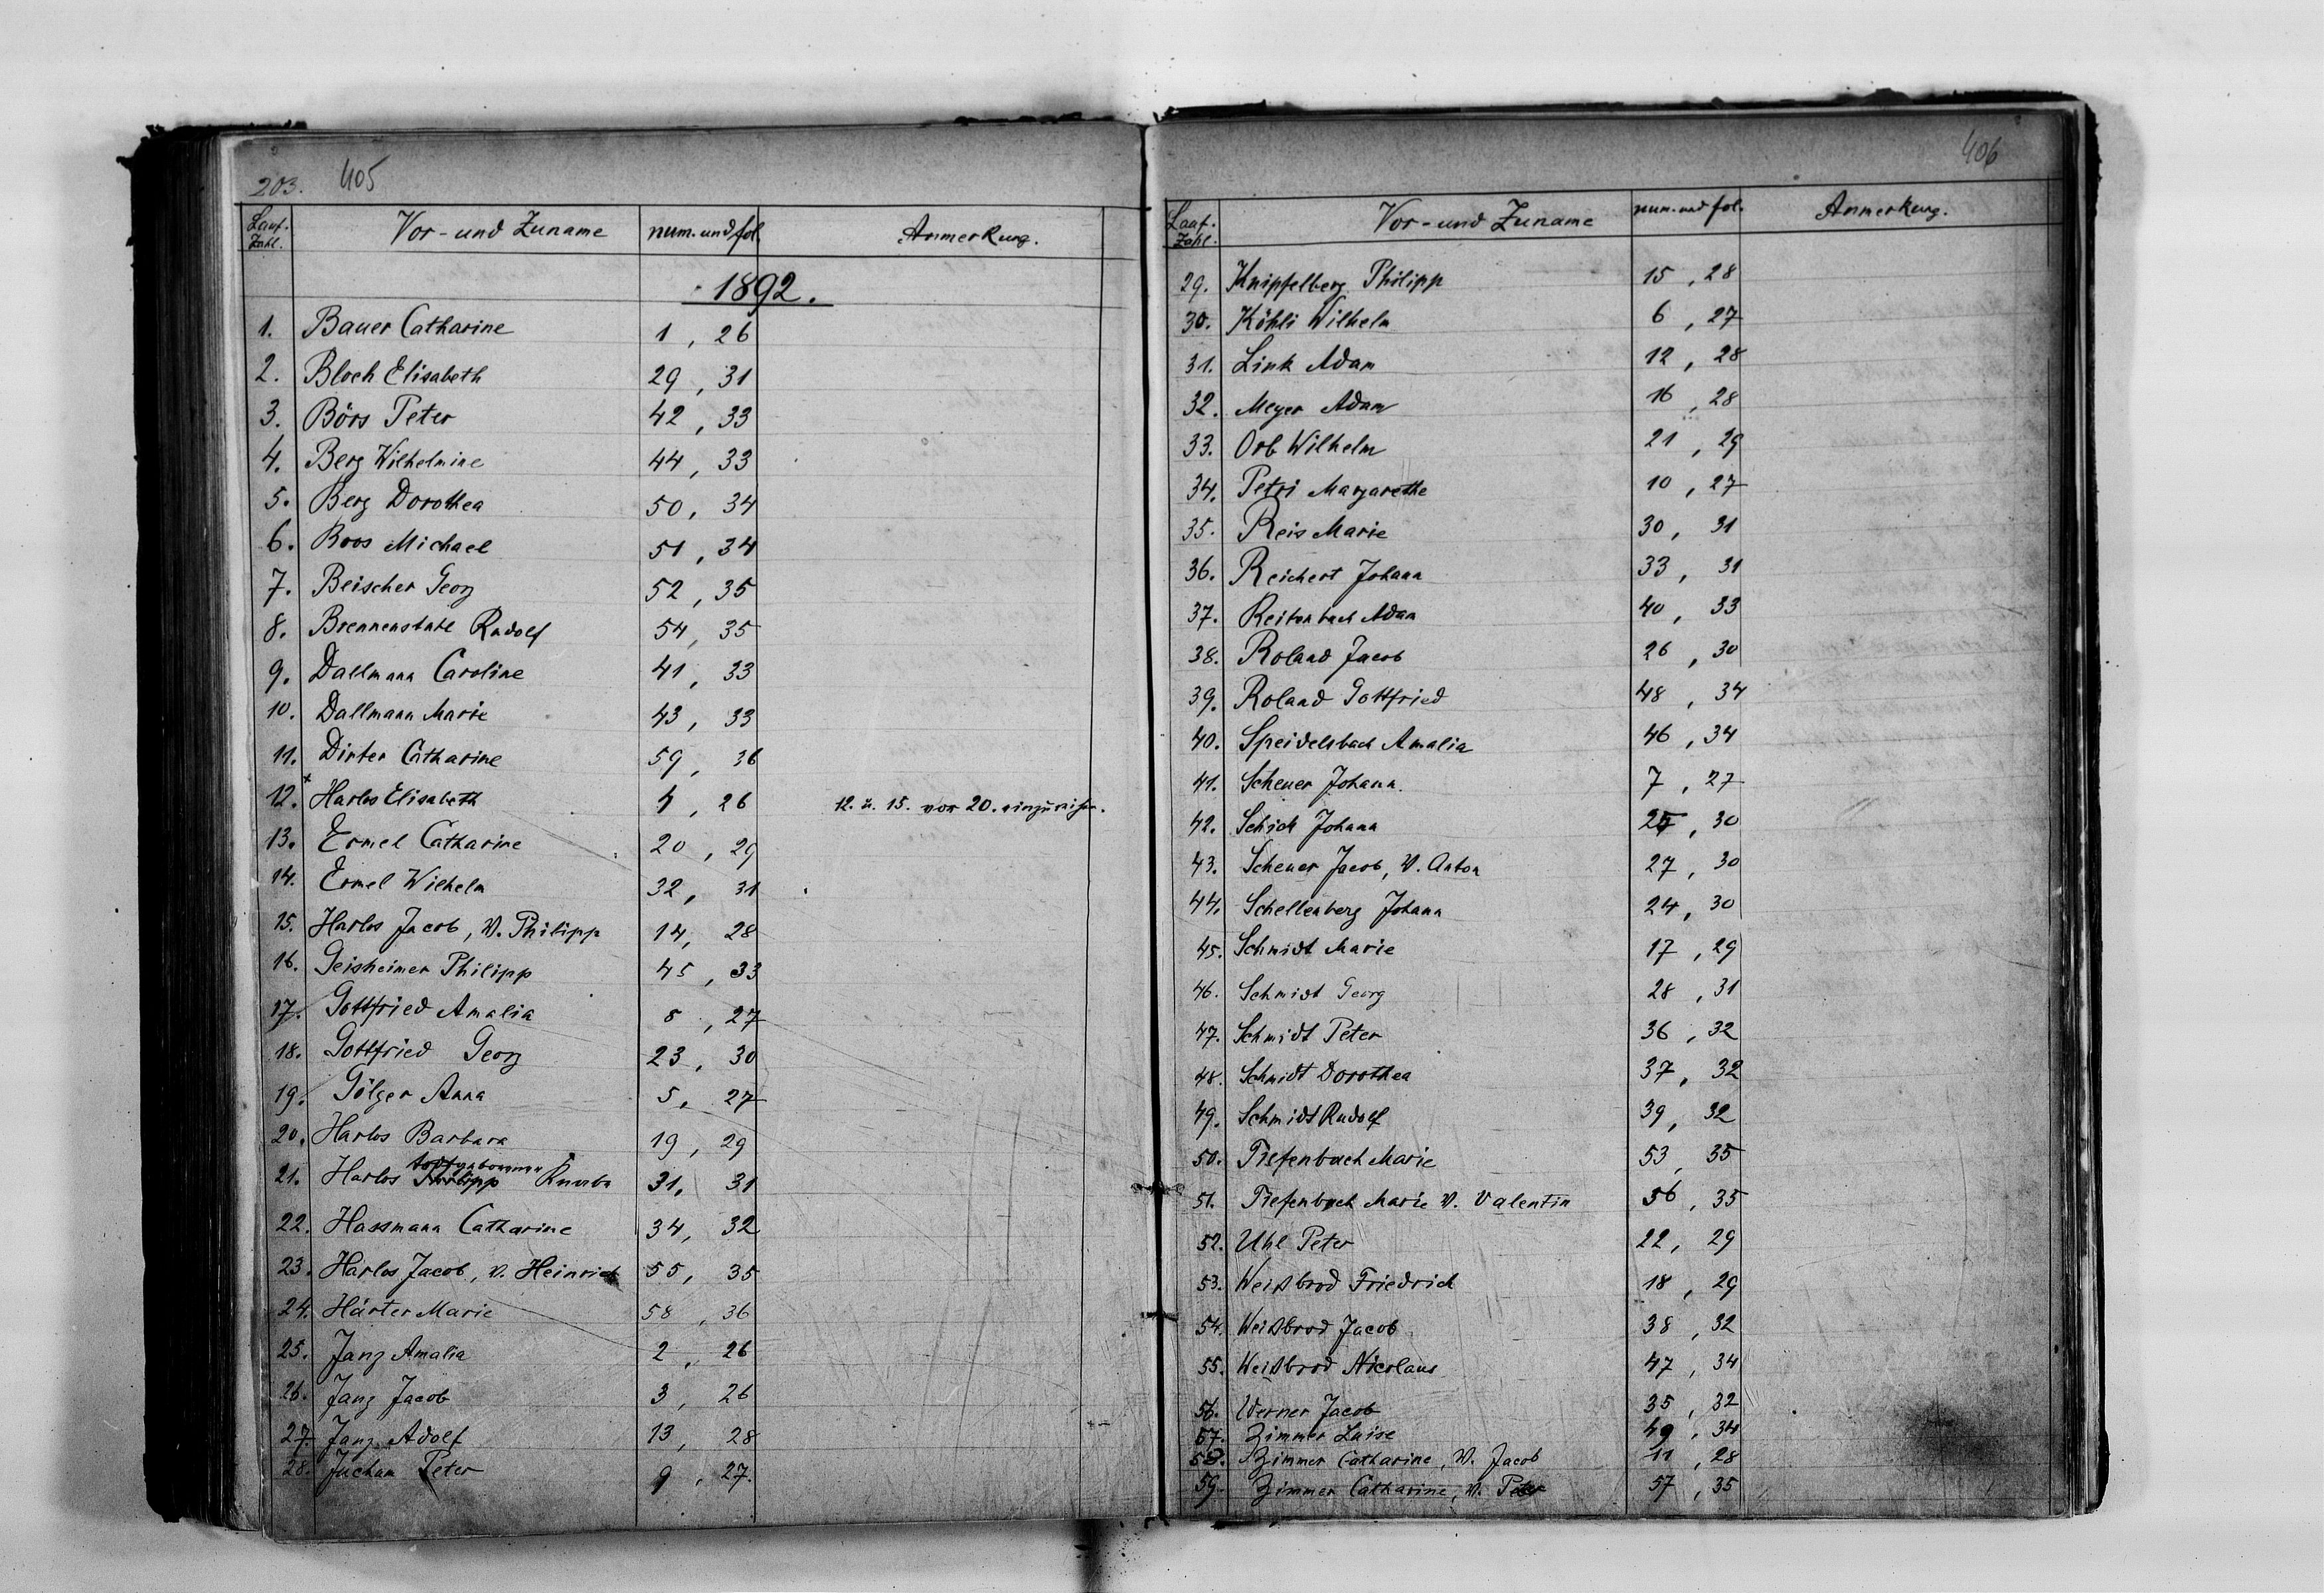 203. 405
Lauf. Zahl. Vor- und Zuname num. und fol. Anmerkung.
1892.
1. Bauer Catharine 1, 26
2. Bloch Elisabeth 29, 31
3. Börs Peter 42, 33
4. Berg Wilhelmine 44, 33
5. Berg Dorothea 50, 34
6. Boos Michael 51, 34
7. Beischer Georg 52, 35
8. Brennenstuhl Rudolf 54, 35
9. Dallmann Caroline 41, 33
10. Dallmann Marie 43, 33
11. Dinter Catharine 59, 36
12. Harlos Elisabeth 4, 26 12. u. 15. vor 20. einzureihen.
13. Ermel Catharine 20, 29
14. Ermel Wilhelm 32, 31
15. Harlos Jacob, V. Philipp 14, 28
16. Geisheimer Philipp 45, 33
17. Gottfried Amalia 8, 27
18. Gottfried Georg 23, 30
19. Gölger Anna 5, 27
20. Harlos Barbara 19, 29
21. Harlos Philipp todtgeborener Knabe 31, 31
22. Hassmann Catharine 34, 32
23. Harlos Jacob, V. Heinrich 55, 35
24. Härter Marie 58, 36
25. Jang Amalia 2, 26
26. Jang Jacob 3, 26
27. Jang Adolf 13, 28
28. Juchum Peter 9, 27.
406
Lauf. Zahl. Vor- und Zuname num. und fol. Anmerkung.
29. Knipfelberg Philipp 15, 28
30. Köhli Wilhelm 6, 27
31. Link Adam 12, 28
32. Meyer Adam 16, 28
33. Orb Wilhelm 21, 29
34. Petri Margarethe 10, 27
35. Reis Marie 30, 31
36. Reichert Johann 33, 31
37. Reitenbach Adam 40, 33
38. Roland Jacob 26, 30
39. Roland Gottfried 48, 34
40. Speidelsbach Amalia 46, 34
41. Scheuer Johann. 7, 27
42. Schick Johann 25, 30
43. Scheuer Jacob, V. Anton 27, 30
44. Schellenberg Johann 24, 30
45. Schmidt Marie 17, 29
46. Schmidt Georg 28, 31
47. Schmidt Peter 36, 32
48. Schmidt Dorothea 37, 32
49. Schmidt Rudolf 39, 32
50. Tiefenbach Marie 53, 35
51. Tiefenbach Marie V. Valentin 56, 35
52. Uhl Peter 22, 29
53. Weißbrod Friedrich 18, 29
54. Weißbrod Jacob 38, 32
55. Weißbrod Nicolaus 47, 34
56. Werner Jacob 35, 32
57. Zimmer Luise 49, 34
58. Zimmer Catharine, V. Jacob 11, 28
59. Zimmer Catharine, V. Peter 57, 35